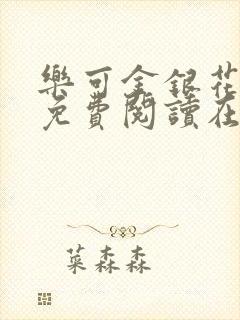 樂可金銀花
免費閱讀在
菜森森